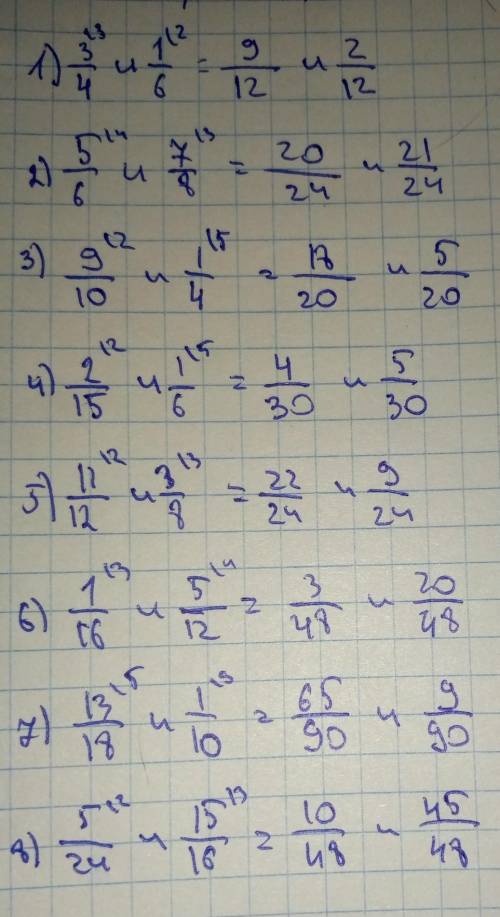 1) 3/4 \3 и 1/6 \2 = 9/12 и 2/12
2) 5/6 \4 и 7/8 \3 = 20/24 и 21/24
3) 9/10 \2 и 1/4 \5 = 18/20 и 5/20
4) 2/15 \2 и 1/6 \5 = 4/30 и 5/30
5) 11/12 \2 и 3/8 \3 = 22/24 и 9/24
6) 1/16 \3 и 5/12 \4 = 3/48 и 20/48
7) 13/18 \5 и 1/10 \9 = 65/90 и 9/90
8) 5/24 \2 и 15/16 \3 = 10/48 и 45/48